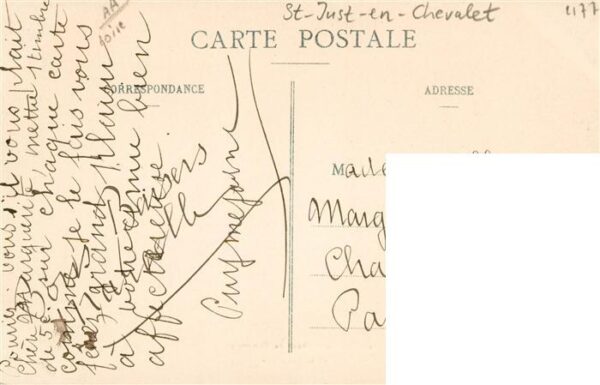 St-Just-en-Chevalet
1177
CARTE POSTALE
CORRESPONDANCE
ADRESSE
Pourriez-vous s'il vous plait
Chère Marguerite mettre 1 timbre
de 5c. sur chaque carte
comme je le fais vous
ferez grand plaisir
à votre amie bien
affectueuse.
Puymejaine
Made
Marg
Cha
Pa